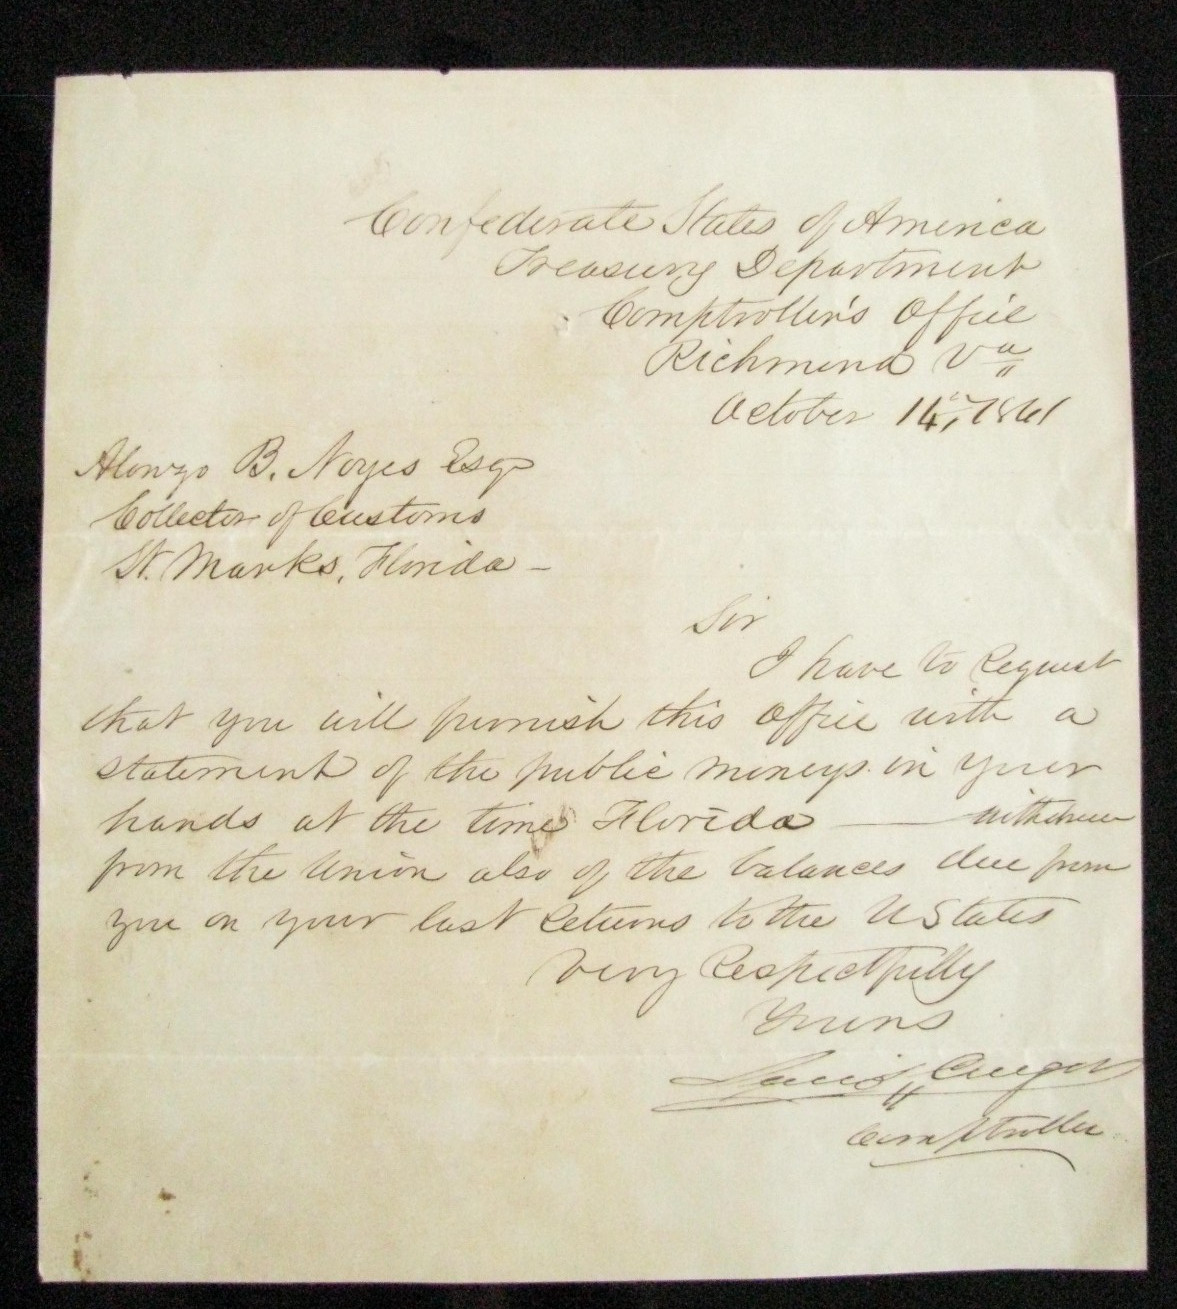 Confederate States of America
Treasury Department
Comptroller's Office
Richmond Va
October 14th, 1861
Alonzo B. Noyes Esqr
Collector of Customs
St. Marks, Florida -
Sir
I have to Request
that you will furnish this Office with a
statement of the public moneys in your
hands at the time Florida — withdrew
from the Union also of the balances due from
you on your last Returns to the U States
Very Respectfully
Yours
Lewis Cruger
Comptroller